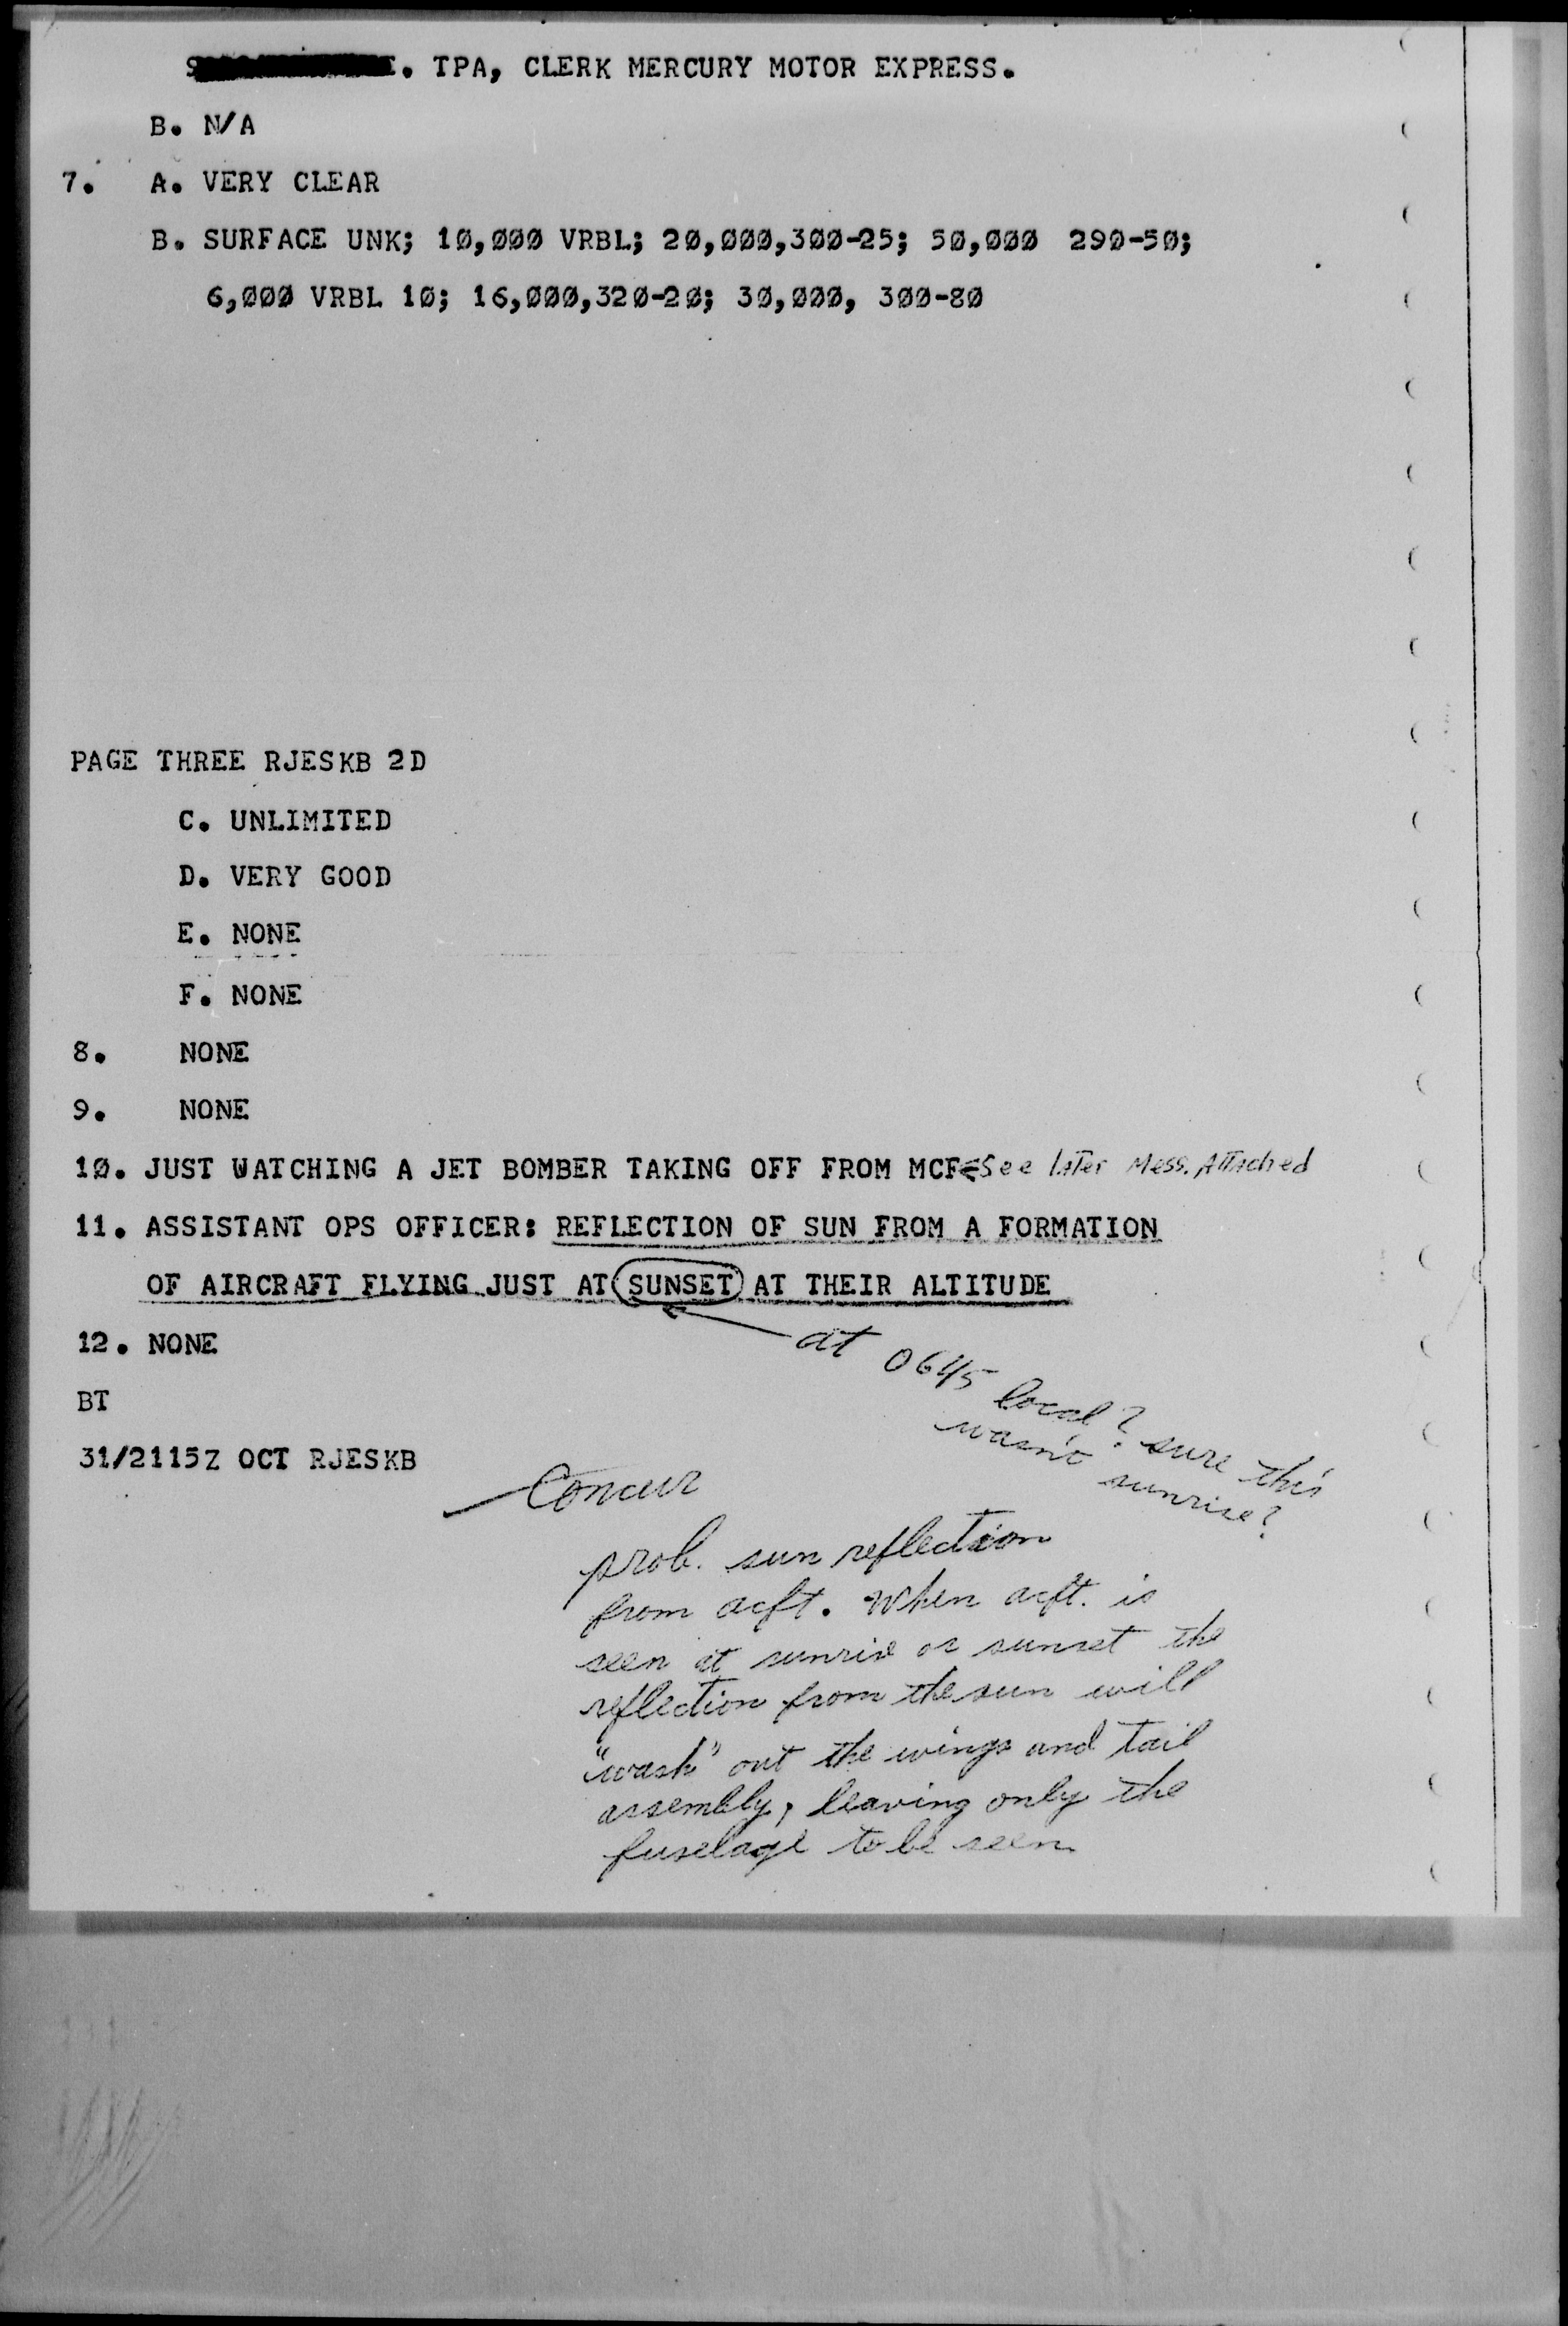 . TPA, CLERK MERCURY MOTOR EXPRESS.
B. N/A
7. A. VERY CLEAR
B. SURFACE UNK; 10,000 VRBL; 20,000,300-25; 50,000 290-50;
6,000 VRBL 10; 16,000,320-20; 30,000, 300-80
PAGE THREE RJESKB 2D
C. UNLIMITED
D. VERY GOOD
E. NONE
F. NONE
8. NONE
9. NONE
10. JUST WATCHING A JET BOMBER TAKING OFF FROM MCF See later Mess. Attached
11. ASSISTANT OPS OFFICER: REFLECTION OF SUN FROM A FORMATION
OF AIRCRAFT FLYING JUST AT SUNSET AT THEIR ALTITUDE
12. NONE
at 0645 local? sure this
wasn't sunrise?
BT
31/2115Z OCT RJESKB
Concur
prob. sun reflection
from acft. When acft. is
seen at sunrise or sunset the
reflection from the sun will
"wash" out the wings and tail
assembly, leaving only the
fuselage to be seen